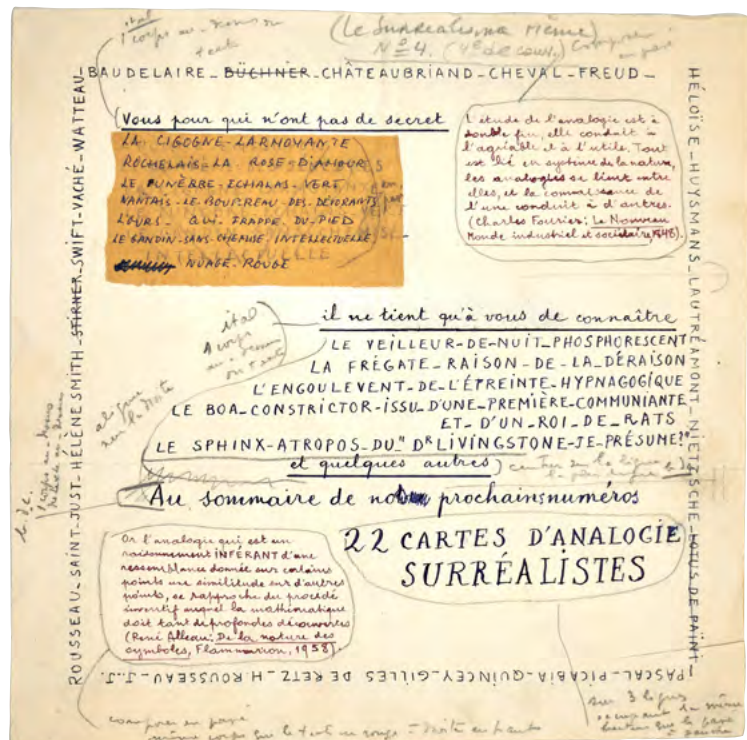 ital
1 corps au-dessous du
text
(Le Surréalisme Même)
Nº 4. (4e de couv.) Composer
en pavé
BAUDELAIRE_BÜCHNER_CHÂTEAUBRIAND_CHEVAL_FREUD_
HÉLOÏSE_HUYSMANS_LAUTRÉAMONT_NIETZSCHE_LOTUS DE PAÏNI_
PASCAL_PICABIA_QUINCEY_GILLES DE RETZ_H.ROUSSEAU_J.-J.
ROUSSEAU_SAINT-JUST_HÉLÈNE SMITH_STIRNER_SWIFT_VACHÉ_WATTEAU_
Vous pour qui n'ont pas de secret
LA CIGOGNE-LARMOYANTE
ROCHELAIS-LA ROSE-D'AMOUR
LE FUNÈBRE-ECHALAS-VERT
NANTAIS-LE BOUPREAU-DES-DÉVORANTS
L'OURS-QUI-FRAPPE-DU-PIED
LE GANDIN-SANS-CHEMISE-INTELLECTUELLE
NUAGE-ROUGE
L'étude de l'analogie est à
double fin, elle conduit à
l'agréable et à l'utile. Tout
est lié en système de la nature,
les analogies se lient entre
elles, et la connaissance de
l'une conduit à d'autres.
(Charles Fourier: Le Nouveau
Monde industriel et sociétaire, 1848).
il ne tient qu'à vous de connaître
ital
1 corps
au-dessous
du text
LE VEILLEUR-DE-NUIT_PHOSPHORESCENT
LA FRÉGATE_RAISON_DE_LA_DÉRAISON
L'ENGOULEVENT-DE-L'ÉPREINTE-HYPNAGOGIQUE
LE BOA_CONSTRICTOR-ISSU_D'UNE_PREMIÈRE-COMMUNIANTE
ET_D'UN_ROI_DE_RATS
LE SPHINX-ATROPOS_DU_"DR LIVINGSTONE-JE-PRÉSUME?"
et quelques autres
aligner
sur la droite
centrer sur la ligne
la plus longue
b.d.c.
Au sommaire de nos prochains numéros
22 CARTES D'ANALOGIE
SURRÉALISTES
Or l'analogie qui est un
raisonnement INFÉRANT d'une
ressemblance donnée sur certains
points une similitude sur d'autres
points, se rapproche du procédé
inventif auquel la mathématique
doit tant de profondes découvertes
(René Alleau: De la nature des
symboles, Flammarion, 1958).
composer en pavé
même corps que le text en rouge = droite en haut
sur 3 lignes
occupant la même
hauteur que le pavé
à gauche